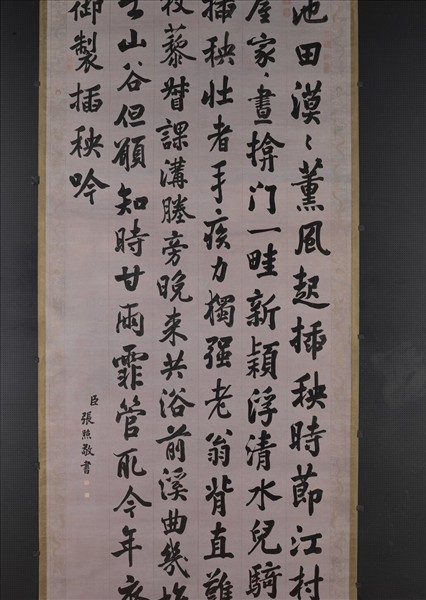 池田漠〻薰風起插秧時節江村
屋家〻晝揜门一畦新穎浮清水兒騎
插秧壯者手疾力獨强老翁背直難
杖藜督課溝塍旁晚来共浴前溪曲幾
山谷但願知時甘雨霏管取今年
御製插秧吟
臣張照敬書